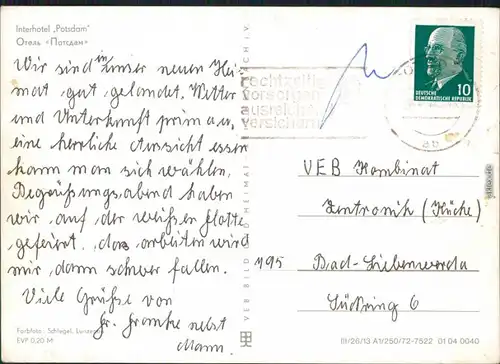 Interhotel „Potsdam"
Отель «Потсдам»
Wir sind in unser neuen Hei
mat gut gelandet. Wetter
und Unterkunft prima u.
eine herrliche Aussicht essen
kann man sich wählen,
Begrüßungsabend haben
wir auf der weißen Flotte
gefeiert, das arbeiten wird
mir, dann schwer fallen.
Viele Grüße von
fr. nebst
Mann.
Farbfoto: Schlegel,
EVP 0,20 M
VEB BILD UND HEIMAT REICHENBACH I. V.
rechtzeitig
vorsorgen
ausreichend
versichern
DEUTSCHE
DEMOKRATISCHE REPUBLIK
10
VEB Kombinat
Zentronik (Küche)
7195 Bad-Liebenwerda
Südring 6
III/26/13 A1/250/72-7522 01 04 0040